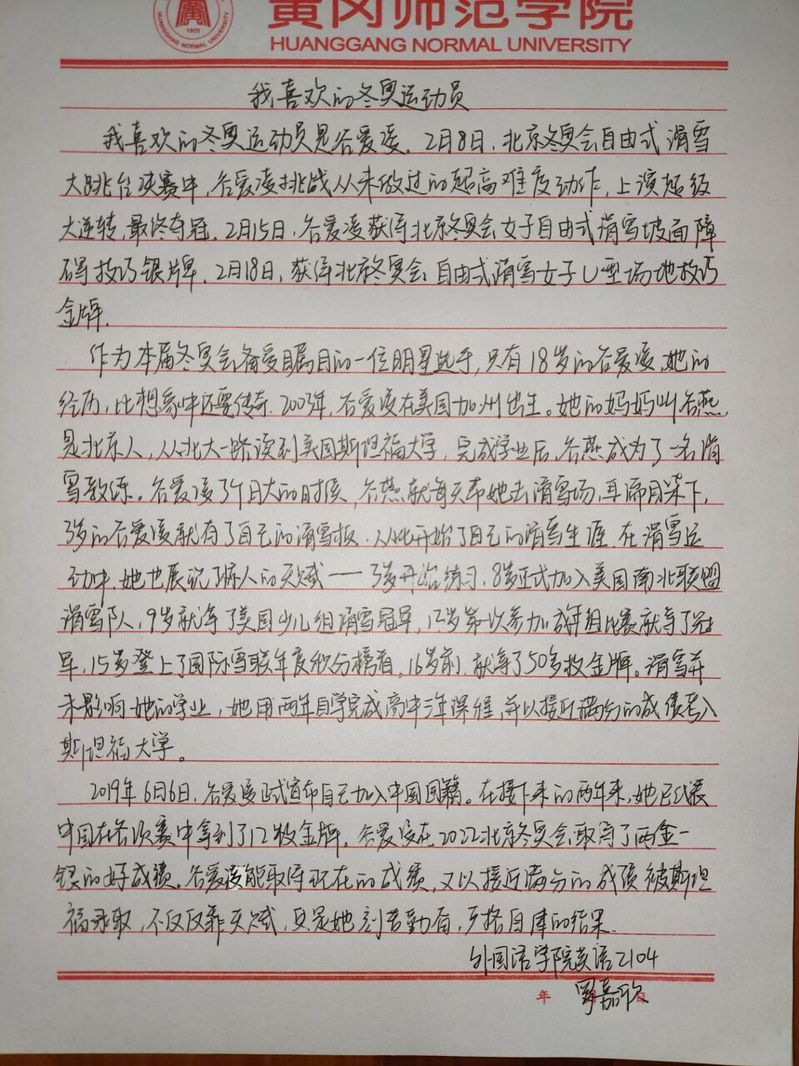 黄冈师范学院
HUANGGANG NORMAL UNIVERSITY
HUANGGANG NORMAL UNIVERSITY
1905
我喜欢的冬奥运动员
我喜欢的冬奥运动员是谷爱凌。2月8日,北京冬奥会自由式滑雪
大跳台决赛中,谷爱凌挑战从未做过的超高难度动作,上演超级
大逆转,最终夺冠。2月15日,谷爱凌获得北京冬奥会女子自由式滑雪坡面障
碍技巧银牌。2月18日,获得北京冬奥会自由式滑雪女子U型场地技巧
金牌。
作为本届冬奥会备受瞩目的一位明星选手,只有18岁的谷爱凌,她的
经历,比想象中还要传奇。2003年,谷爱凌在美国加州出生。她的妈妈叫谷燕,
是北京人,从北大一路读到美国斯坦福大学,完成学业后,谷燕成为了一名滑
雪教练。谷爱凌几个月大的时候,谷燕就每天带她去滑雪场,耳濡目染下,
3岁的谷爱凌就有了自己的滑雪板,从此开始了自己的滑雪生涯。在滑雪运
动中,她也展现了惊人的天赋——3岁开始练习,8岁正式加入美国南北联盟
滑雪队,9岁就夺了美国少儿组滑雪冠军,12岁第一次参加成年组比赛就夺了冠
军,15岁登上了国际雪联年度积分榜首。16岁前,就夺了50多枚金牌。滑雪并
未影响她的学业,她用两年自学完成高中三年课程,并以接近满分的成绩考入
斯坦福大学。
2019年6月6日,谷爱凌正式宣布自己加入中国国籍。在接下来的两年来,她已代表
中国在各次赛中拿到了12枚金牌。谷爱凌在2022北京冬奥会取得了两金一
银的好成绩。谷爱凌能取得现在的成绩,又以接近满分的成绩被斯坦
福录取,不仅仅靠天赋,更是她刻苦勤奋,严格自律的结果。
外国语学院英语2104
年 日
罗嘉欣